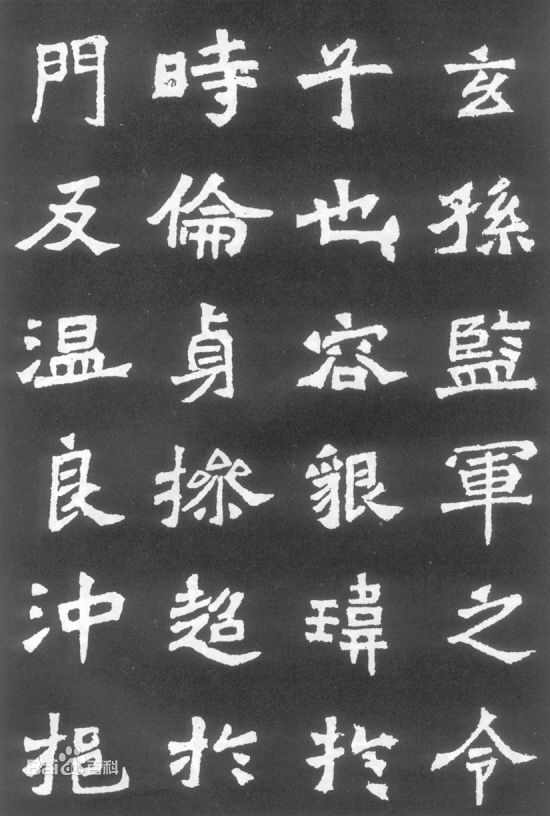 玄孫監軍之令
子也容貇瑋於
時倫貞操超於
門友温良沖挹
Bai百科